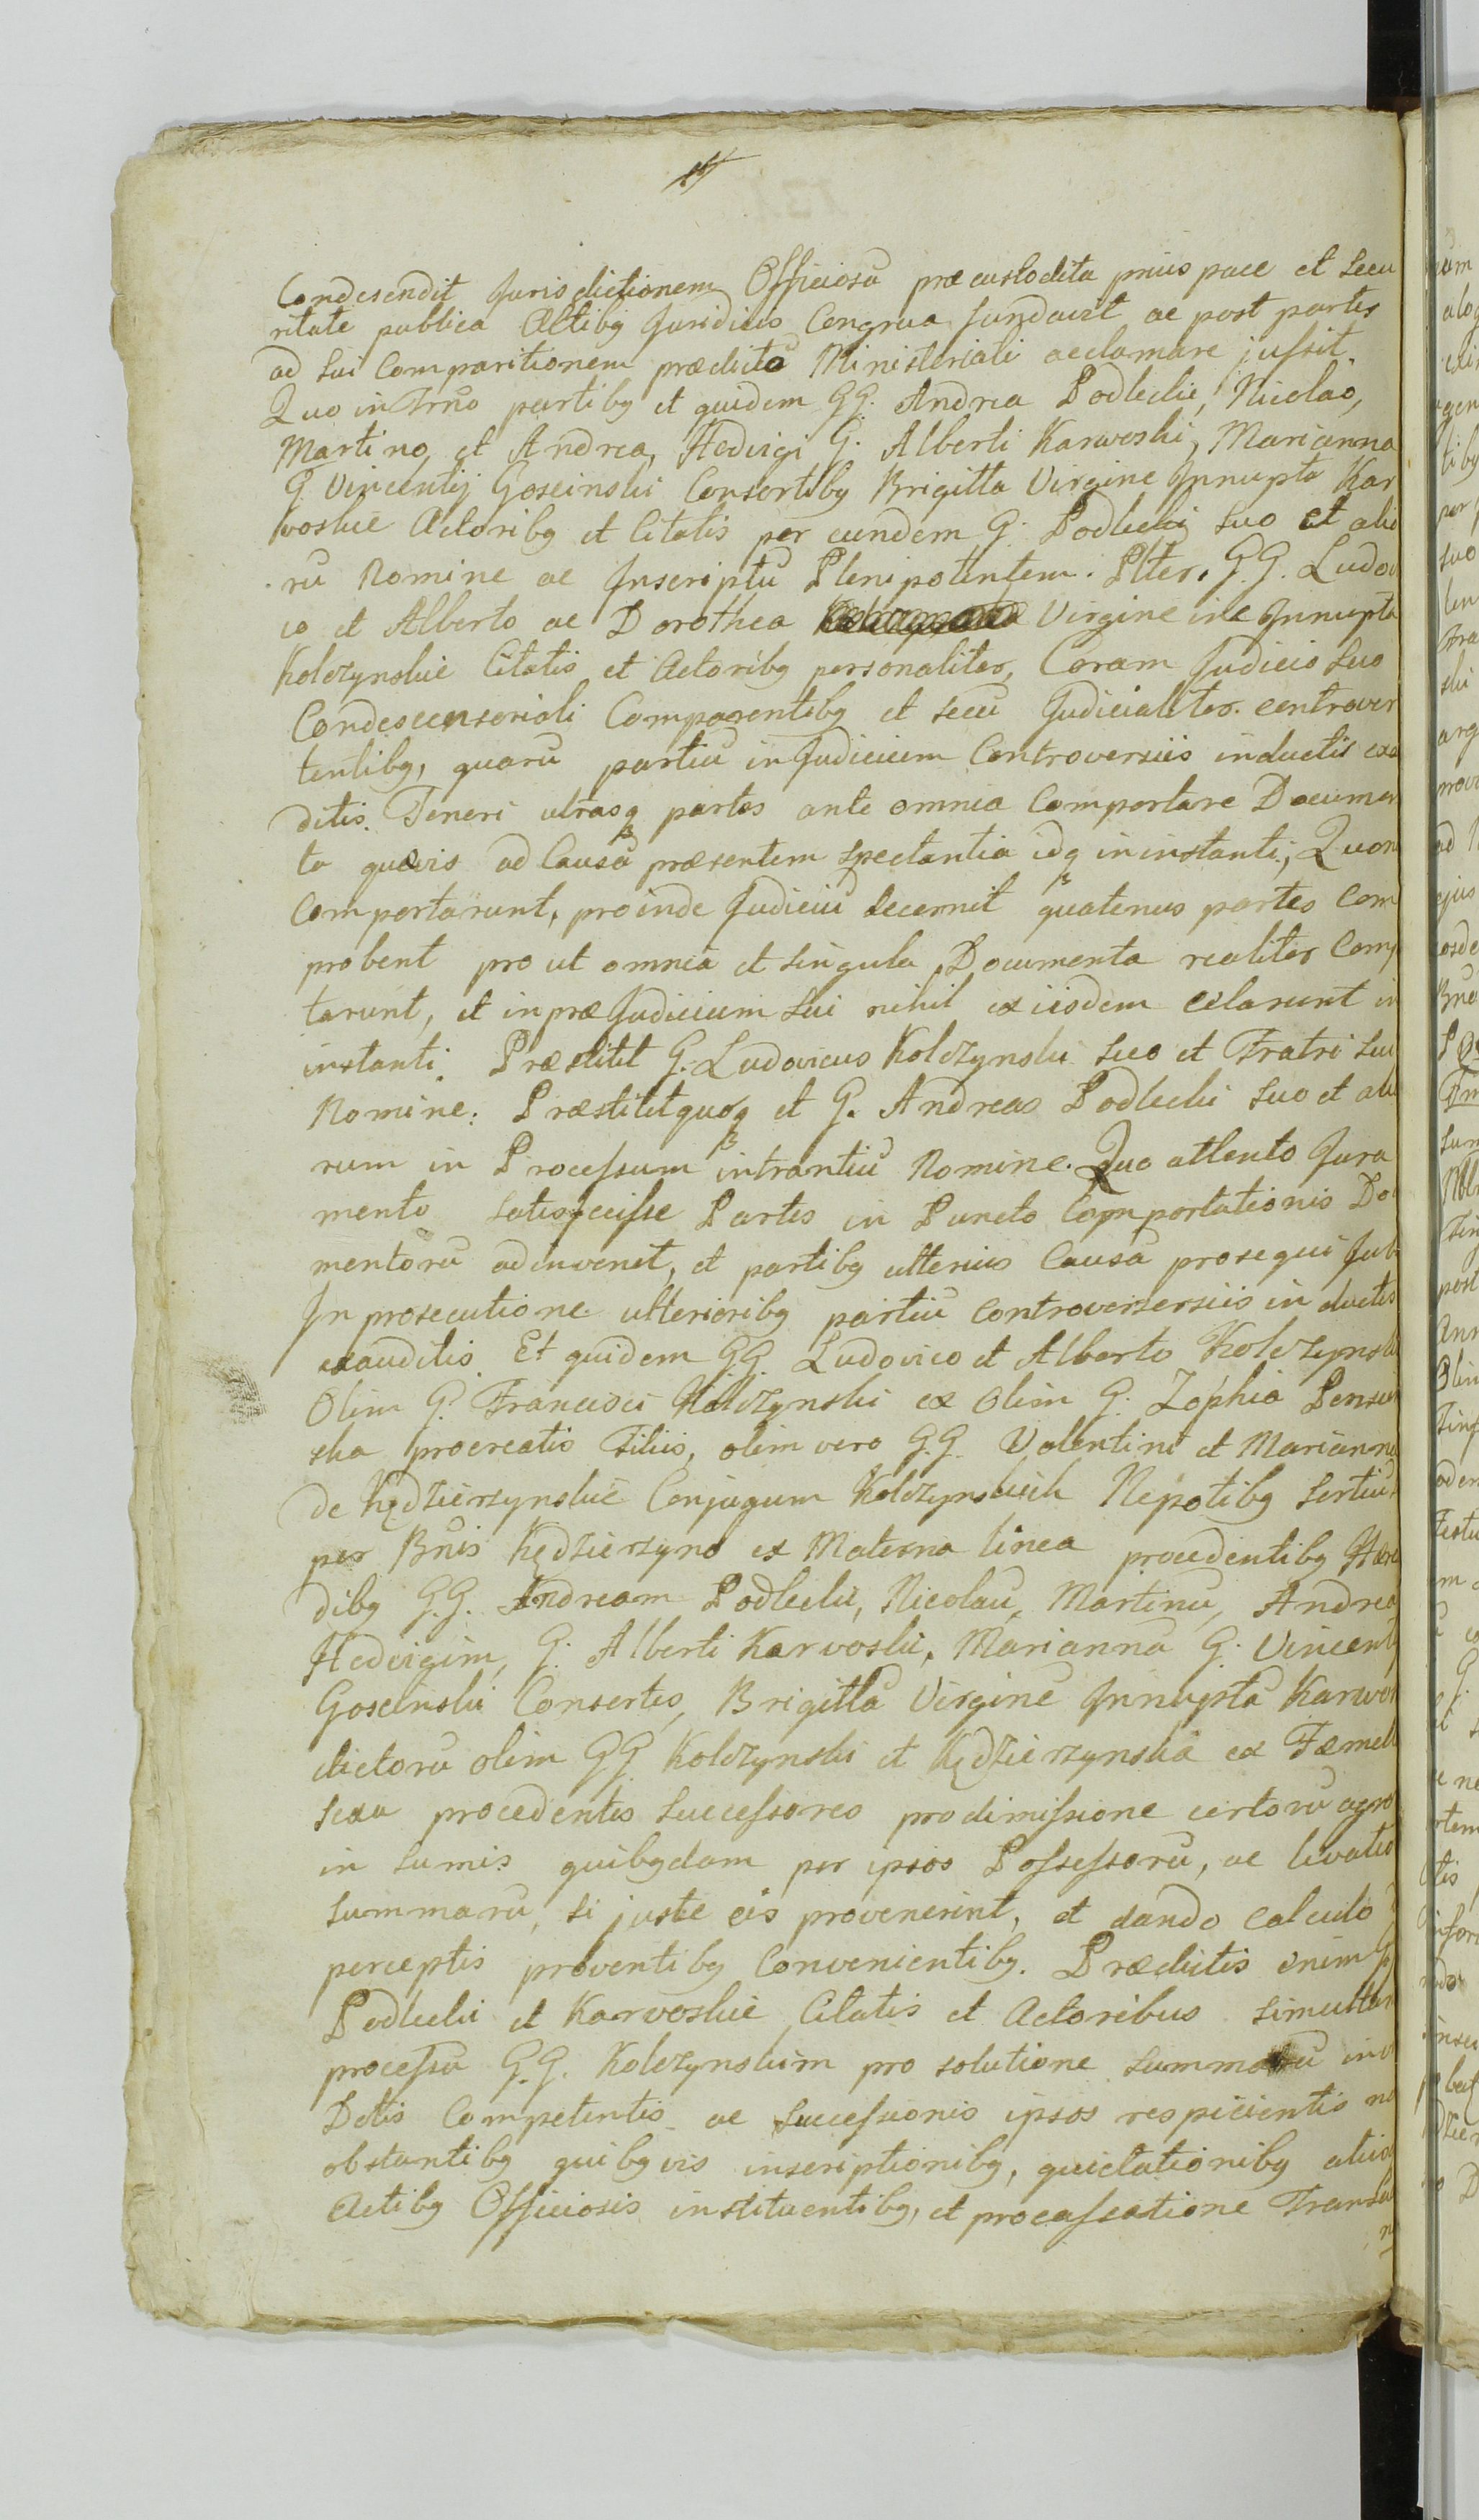 Condescendit Jurisdictionem Officiosã præcustodita prius pace et Secu
ritate publica Actibq Juridicis Congrua fundavit ac post partes
ad sui Comparitionem prædicto Ministeriali acclamare jussit.
Quo in Trno partibq et quidem GG. Andrea Podlecki, Nicolao,
Martino et Andrea, Hedvigi G. Alberti Karwoski, Marianna
G Vincentij Goscinski Consortibq Brigitta Virgine Innupta Kar
woskie Actoribq et Citatis per eundem G. Podlecki Suo et alio
rũ Nomine ac Inscriptũ Plenipotentem. Plter. GG. Ludovi
co et Alberto ac Dorothea Virgine Innupta
Kolczynskie Citatis et Actoribq personaliter, Coram Judicio Suo
Condescensoriali Comparentibq et secũ Judicialiter controver
tentibq, quarũ partiũ in Judicium Controversiis inductis exa
ditis. Teneri utrasq partes ante omnia Comportare Documen
ta quævis ad Causã præsentem Spectantia idq in instanti; Quon
Comportarunt, proinde Judiciũ decernit quatenus partes Com
probent pro ut omnia et singula Documenta realiter Comp
tarunt, et in præJudicium Sui nihil ex iisdem celarunt in
instanti. Præstitit G. Ludovicus Kolczynski Suo et Fratri Sui
Nomine. Præstitit quoq et G. Andreas Podlecki Suo et alio
rum in Processum intrantiũ Nomine. Quo attento Jura
mento Satisfecisse Partes in Puncto Comportationis Do
mentorũ adinvenit, et partibq ulterius Causã prosequi Jub
In prosecutione ulterioribq partiũ controverserstiis in ductis
exauditis Et quidem GG. Ludovico et Alberto Kolczynski
Olim G. Francisci Kolczynski ex Olim G. Zophia Pensi
ska procreatis Filiis, olim vero GG. Valentini et Marianna
de Kędzierzynskie Conjugum Kolczynskich Nepotibq Sortiũ
per Bnis Kędzierzyno ex Materna linea procedentibq Hære
dibq GG. Andream Podlecki, Nicolaũ, Martinũ, Andreã
Hedvigim, G. Alberti Karvoski, Mariannã G. Vincent
Goscinski Consortes, Brigittã Virginẽ Innuptã Karwos
dictorũ olim GG Kolczynski et Kędzierzynska ex Fæmel
sexu procedentes Successores pro dimissione certorũ agro
in Sumis quibqdam per ipsos Possessorũ, ac levatio
Summarũ, si juste eis provenerint, et dando calculo
perceptis proventibq Convenientibq. Prædictis enim G
Podlecki et Karvoskie Citatis et Actoribus simultan
processu G.G. Kolczynskim pro solutione Summarũ in
Dotis Competentis ac Successionis ipsos respicientis no
obstantibq quibqvis inscriptionibq, quietationibq aliis
Actibq Officiosis instituentibq, et pro cassatione Transa